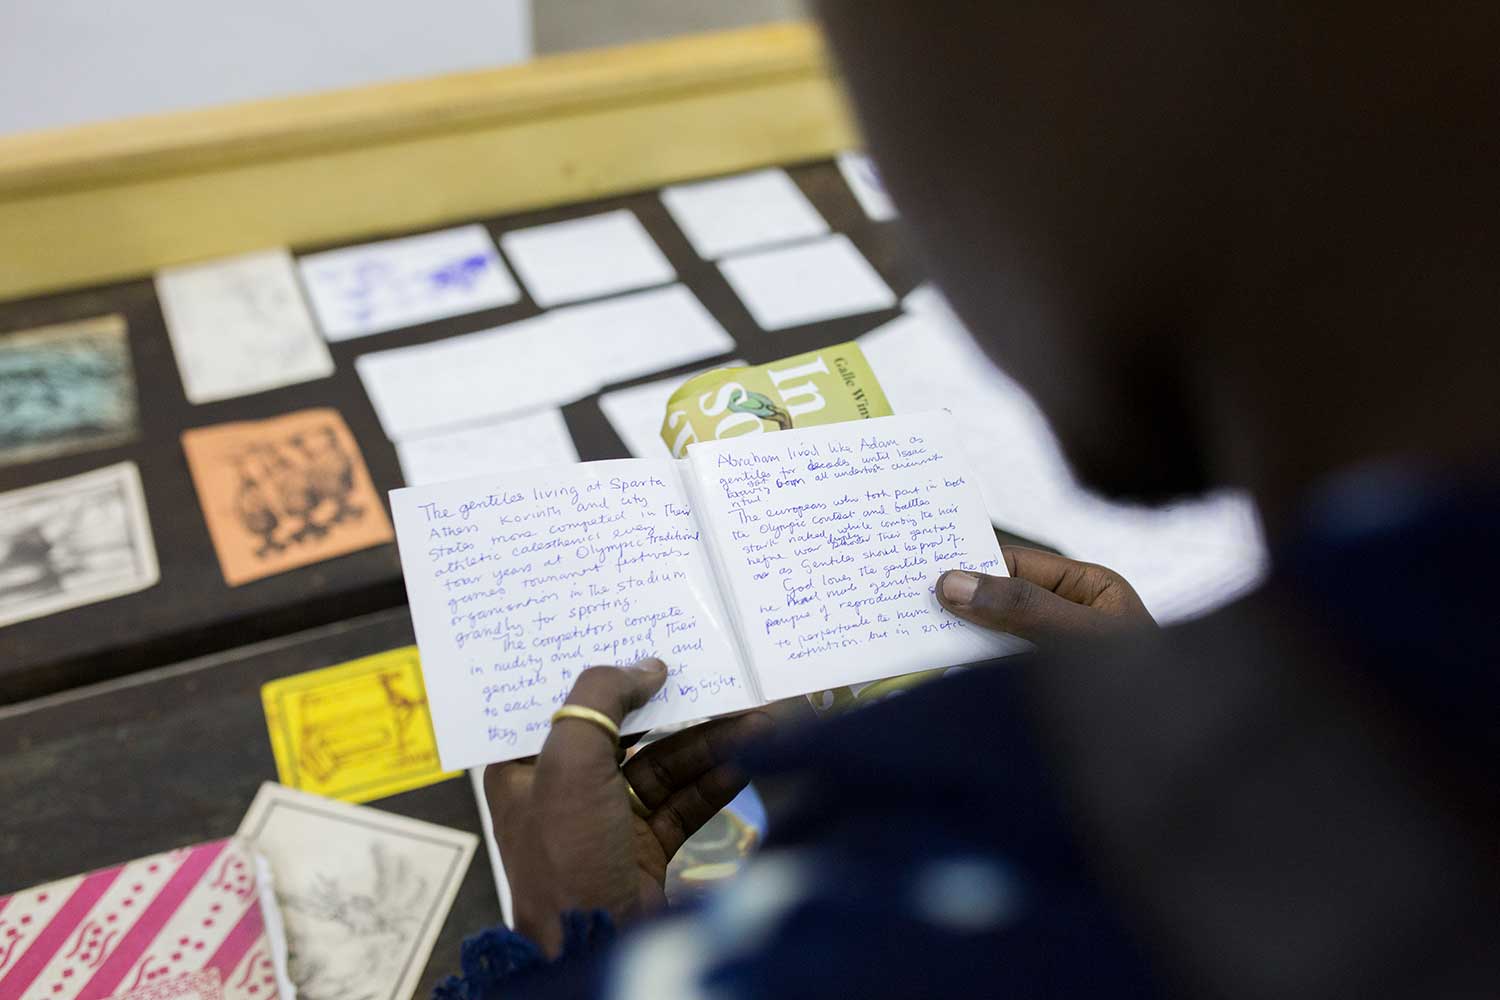 Galle Wins
In
so
The gentiles living at Sparta
Athen Korinth and city
States more competed in their
athletic calesthenics every
four years at Olympic Traditional
games tournamnt festivals
organisation in the stadium
grandly for sporting.
The competitors compete
in nudity and exposed their
genitals to the public and
to each by sight.
they are
Abraham lived like Adam as
gentiles for decades until Isaac
got born all undertook
The europeans who took part in both
the Olympic contest and battles
stark naked while combing the hair
before war their genitals
as Gentiles should be proud of.
God loves the gentiles becau
he male genitals for the good
purpose of reproduction
to perpetuate the
extinction. but in